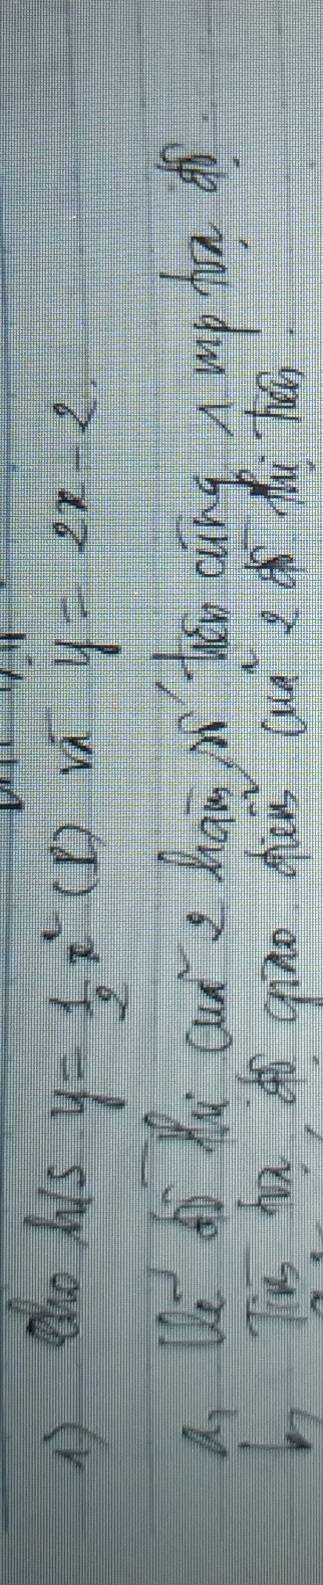 1) Cho h/s y = 1/2 x² (P) và y = 2x - 2.
a, Vẽ đồ thị của 2 hàm số trên cùng 1 mp tọa độ.
b, Tìm tọa độ giao điểm của 2 đồ thị trên.